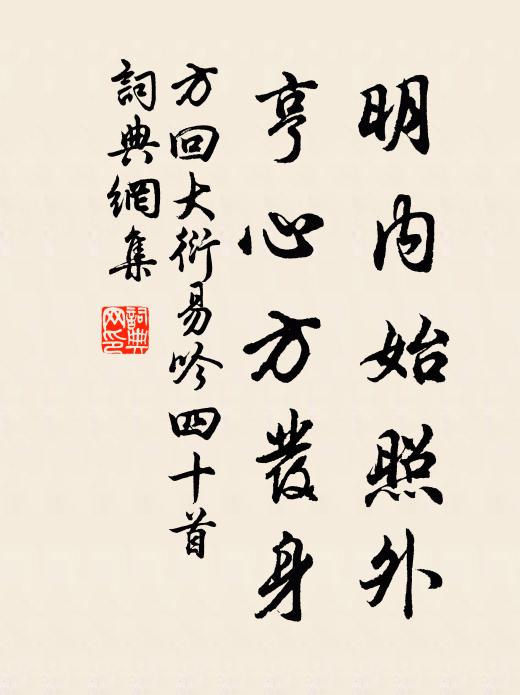 明内始照外
亨心方發身
方回大衍易吟四十首
詞典網集
詞典网印